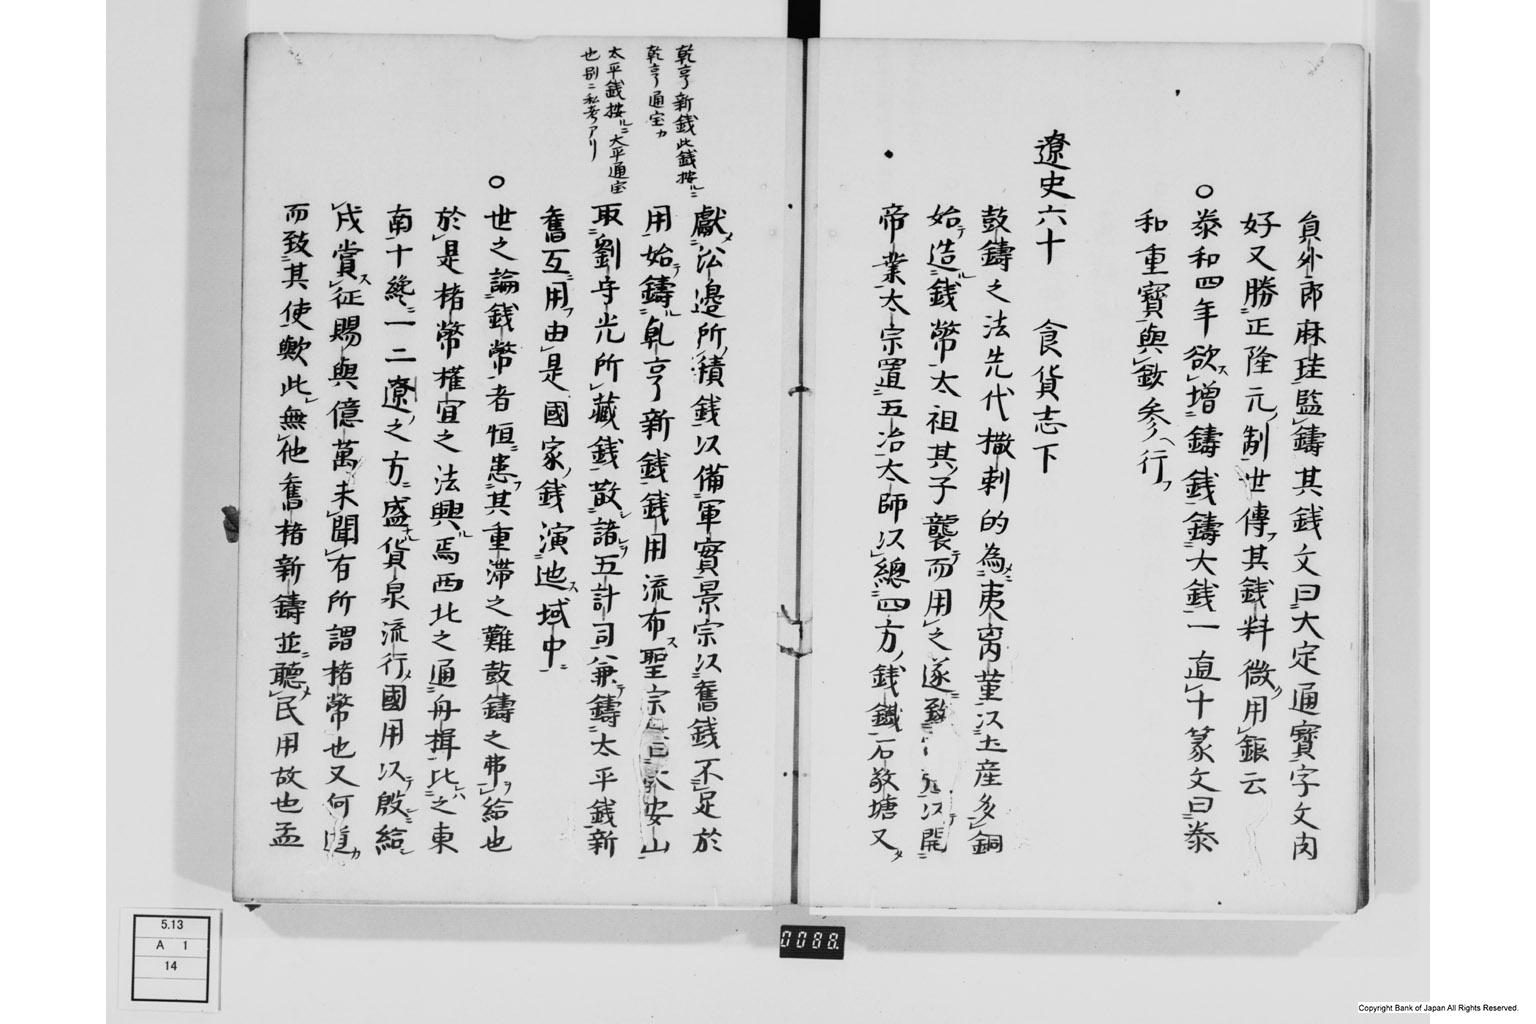 員外郎麻珪監鑄其銭文曰大定通寳字文肉
好又勝正隆元制世傳其銭料微用銀云
○泰和四年欲増鑄銭鑄大銭一直十篆文曰泰
和重寳與鈔参行
遼史六十 食貨志下
鼓鑄之法先代撒剌的為夷离菫以土産多銅
始造銭幣太祖其子襲而用之遂致 以開
帝業太宗置五冶太師以總四方銭鐵石敬塘又
獻沿邊所積銭以備軍實景宗以舊銭不足於
用始鑄乹亨新銭銭用流布聖宗 大安山
取劉守光所藏銭散諸五計司兼鑄太平銭新
舊互用由是國家銭演迆域中
○世之論銭幣者恒患其重滞之難鼓鑄之弗給也
於是楮幣權宜之法興焉西北之通舟揖比之東
南十纔一二遼之方盛貨泉流行國用以殷給
戍賞征賜與億萬未聞有所謂楮幣也又何道
而致其使歟此無他舊楮新鑄並聴民用故也孟
乾亨新銭此銭按ルニ
乾亨通宝カ
太平銭按ルニ太平通宝
也別ニ私考アリ
5.13
A 1
14
0088.
Copyright Bank of Japan All Rights Reserved.